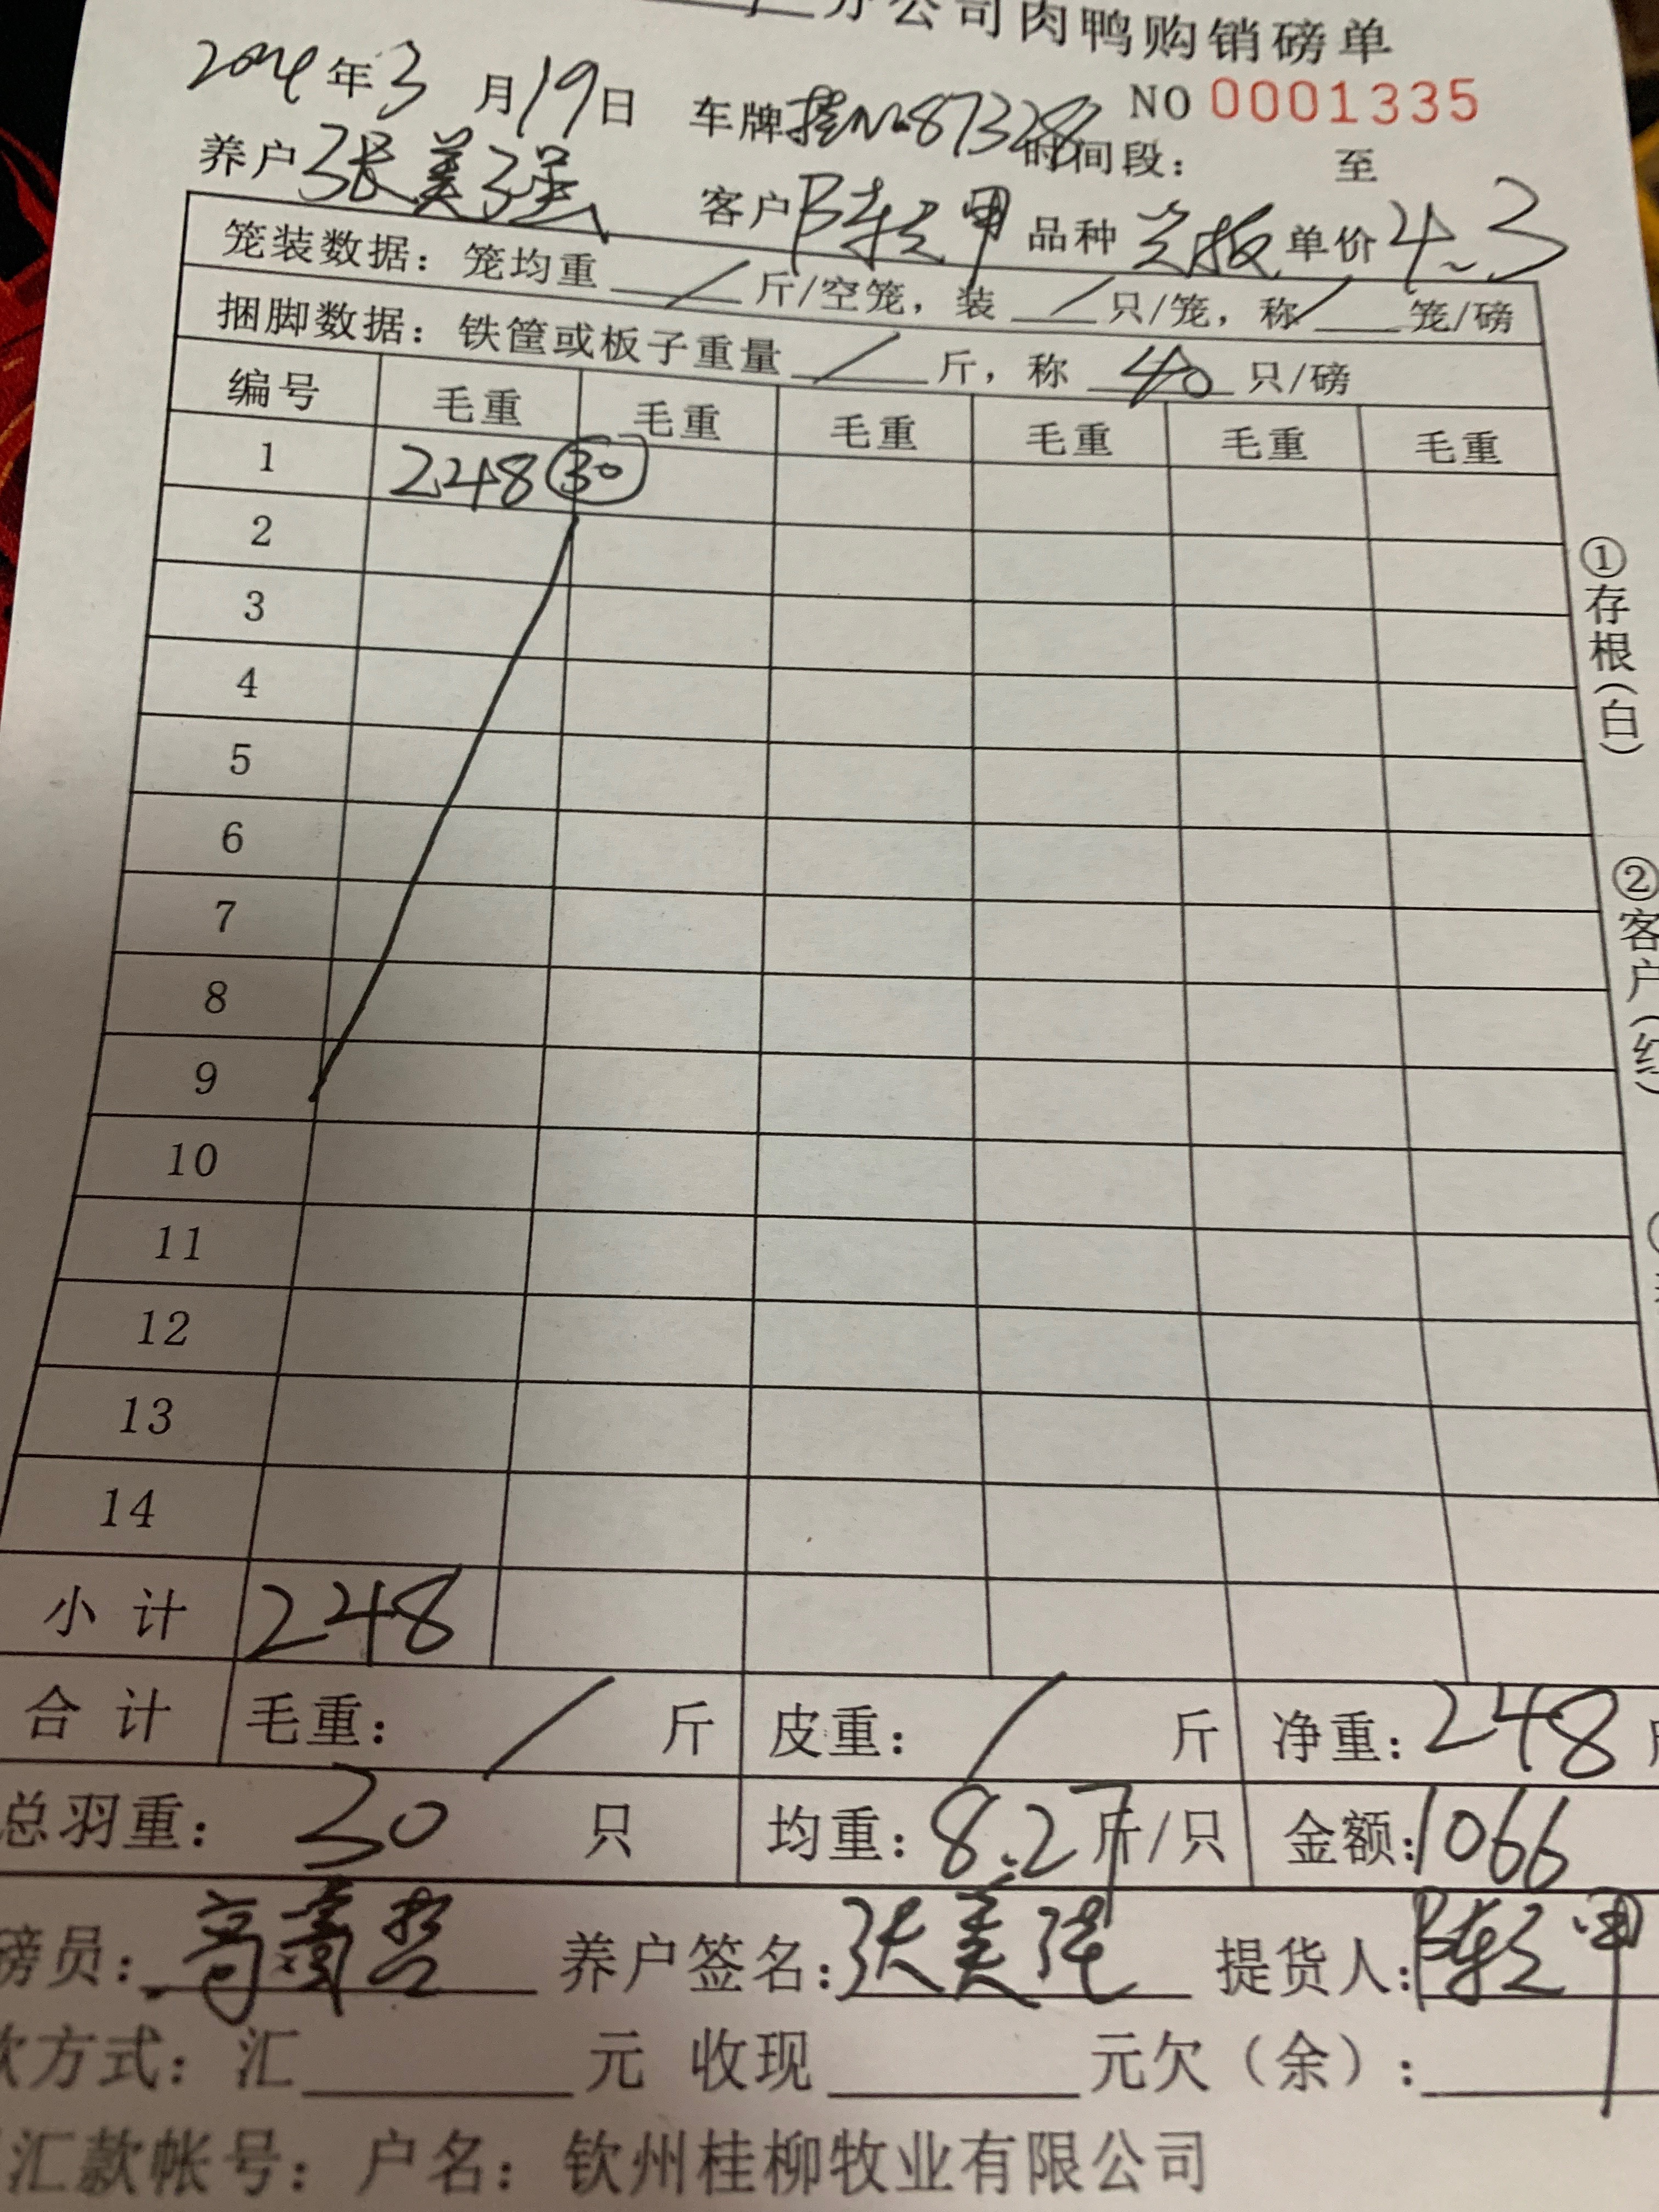 分公司肉鸭购销磅单
2024年3月19日 车牌桂N·87328 NO 0001335
时间段： 至
养户张美强 客户陈超甲 品种 单价4.3
笼装数据：笼均重／斤/空笼，装／只/笼，称／笼/磅
捆脚数据：铁筐或板子重量／斤，称40只/磅
编号 毛重 毛重 毛重 毛重 毛重 毛重
1 248 30
2
3
4
5
6
7
8
9
10
11
12
13
14
小计 248
合计 毛重：／斤 皮重：／斤 净重：248
总羽重：30只 均重：8.27斤/只 金额：1066
磅员：高 养户签名：张美强 提货人：陈超甲
款方式：汇 元 收现 元欠（余）：
汇款帐号：户名：钦州桂柳牧业有限公司
①存根（白）
②客户（红）